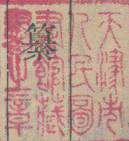 天津市
人民圖
書館藏
書之章
纂